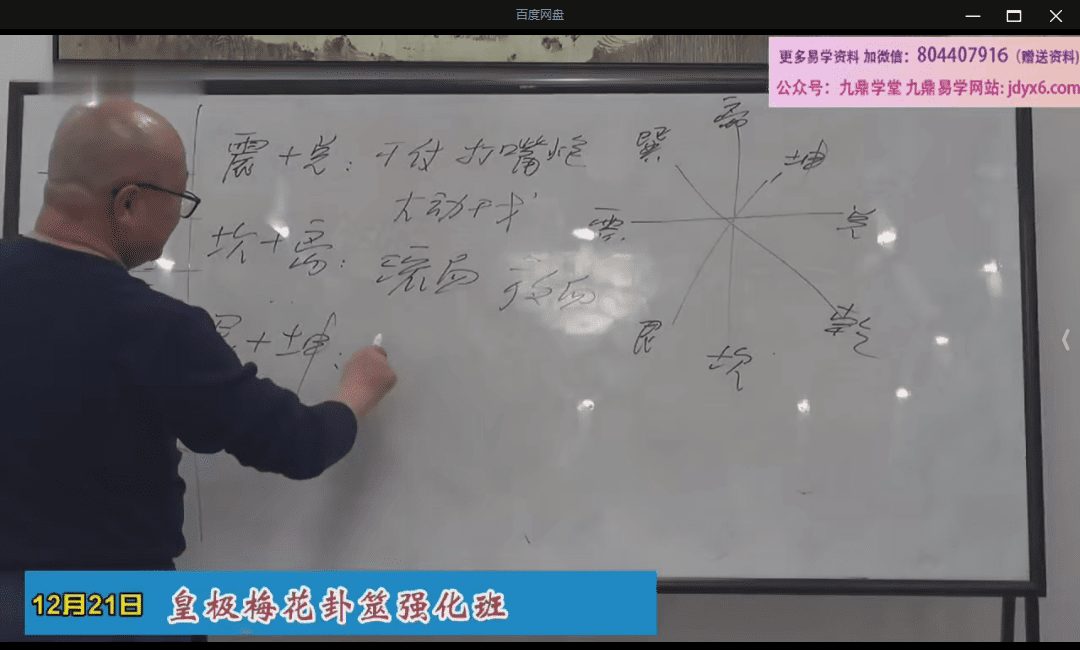 百度网盘
更多易学资料 加微信：804407916（赠送资料）
公众号：九鼎学堂 九鼎易学网站: jdyx6.com
震+兑：打嘴炮
大动干戈
坎+离：
艮+坤：
巽
离
坤
震
兑
艮
坎
乾
12月21日 皇极梅花卦筮强化班